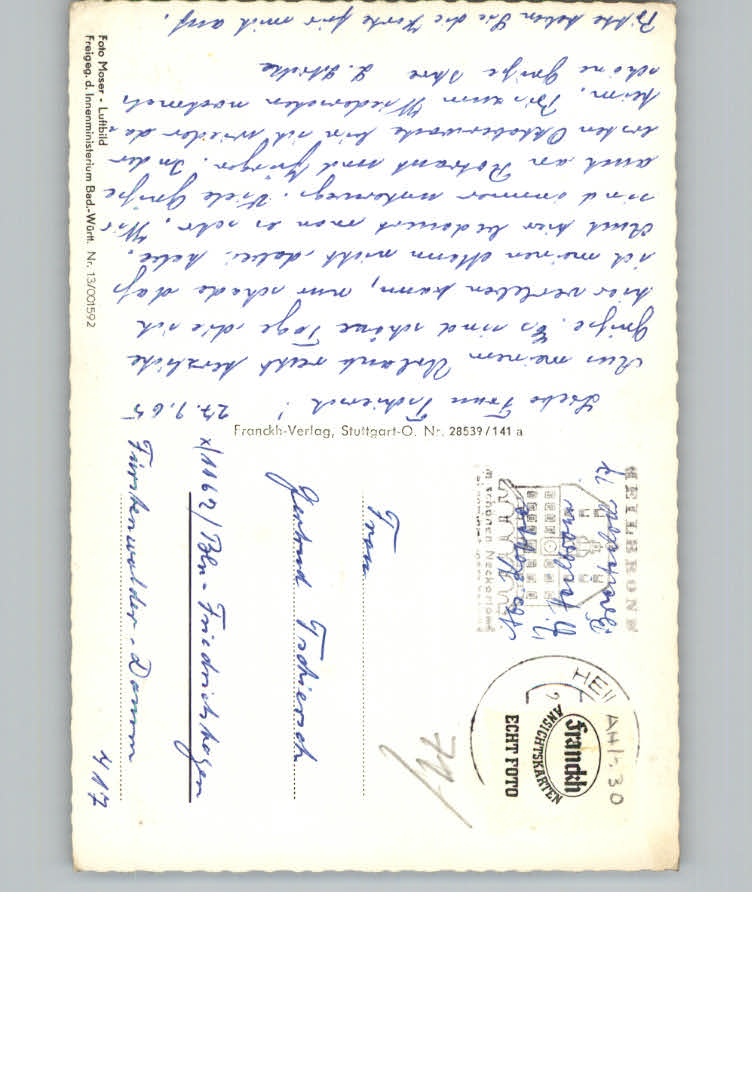 Liebe Frau Tschiersch! 27.9.65
Aus meinem Urlaub recht herzliche
Grüße. Es sind schöne Tage die ich
hier verleben kann, nur schade daß
ich meinen Mann nicht dabei habe.
Auch hier bedauert man es sehr. Wir
sind immer unterwegs. Viele Grüße
auch an und Jürgen. In der
ersten Oktoberwoche bin ich wieder da-
heim. Bis zum Wiedersehen nochmals
schöne Grüße Ihre
Bitte heben Sie die Karte für mich auf.
Foto Moser - Luftbild
Freigeg. d. Innenministerium Bad.-Württ. Nr. 13/001592
Franckh-Verlag, Stuttgart-O. Nr. 28539/141 a
HEILBRONN
Neckarland
HEIL
AH/- 30
Franckh
ANSICHTSKARTEN
ECHT FOTO
74
Frau
Gertrud Tschiersch
x/1162/Bln-Friedrichshagen
Fürstenwalder-Damm
417